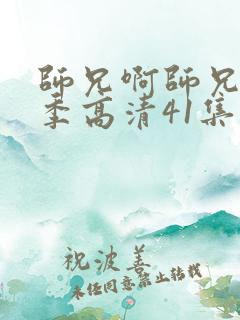 師兄啊師兄
季高清41集
祝波善
未经同意禁止转载